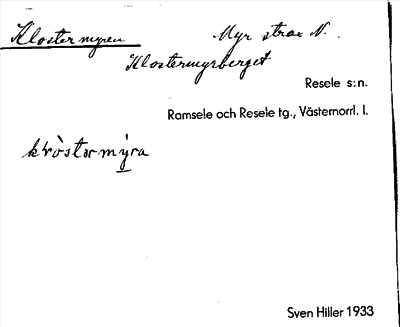 Klostermyren Myr strax N.
Klostermyrberget
Resele s:n.
Ramsele och Resele tg., Västernorrl. l.
Sven Hiller 1933